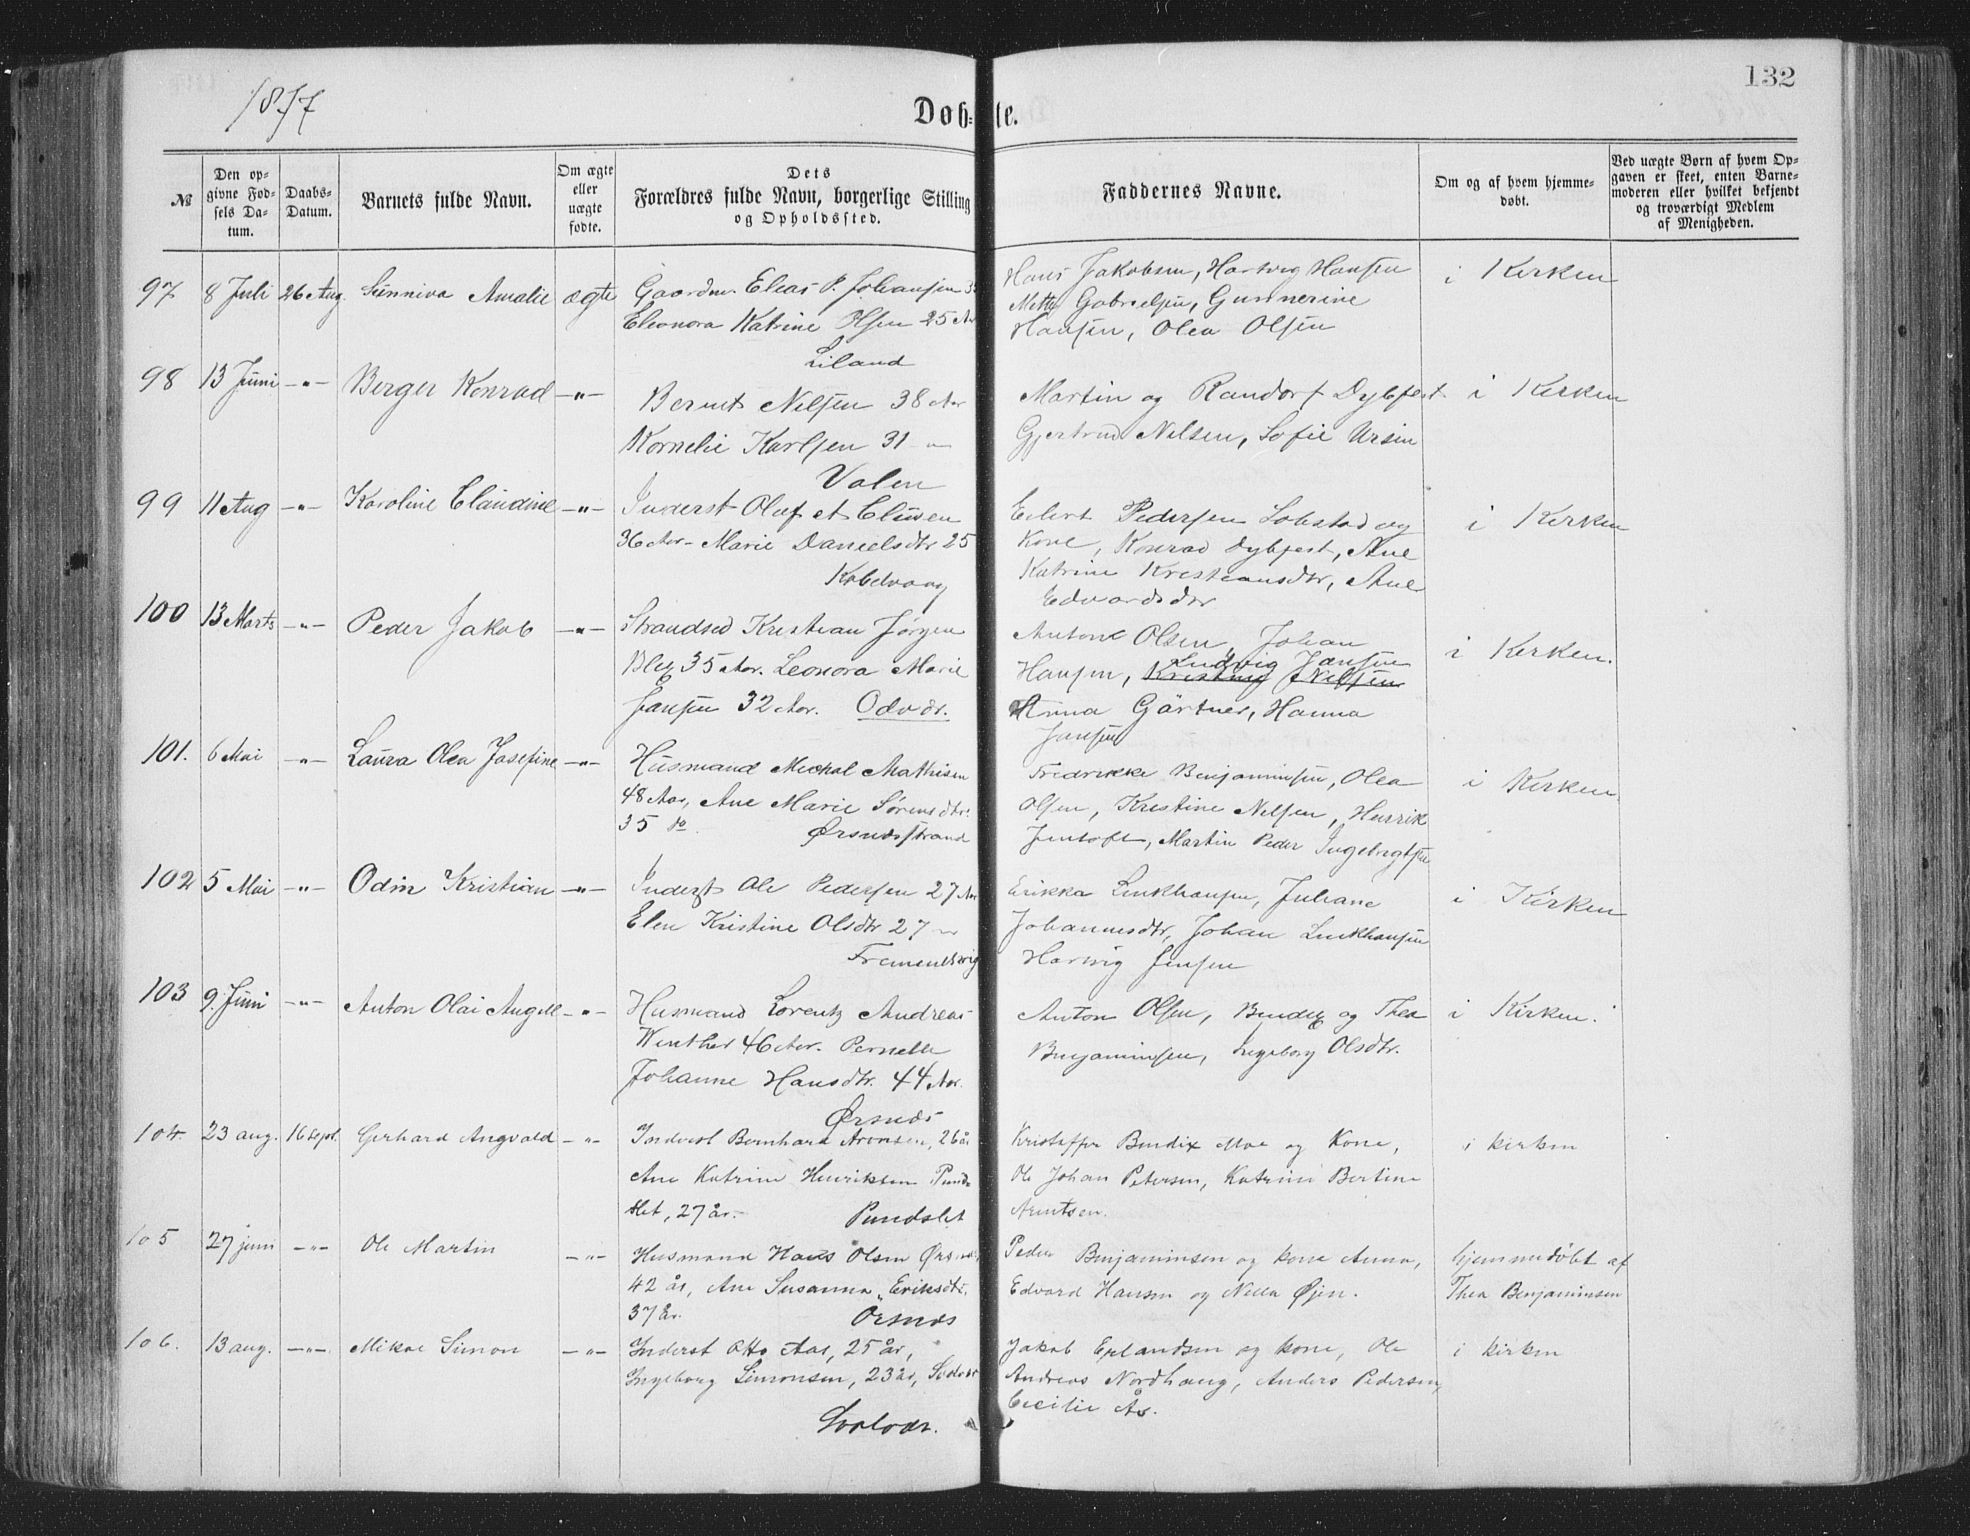 132
1877
Døb-te.
№
Den opgivne Fødsels Datum.
Daabs-Datum.
Barnets fulde Navn.
Om ægte eller uægte fødte.
Dets Forældres fulde Navn, borgerlige Stilling og Opholdssted.
Faddernes Navne.
Om og af hvem hjemmedøbt.
Ved uægte Børn af hvem Opgaven er skeet, enten Barnemoderen eller hvilket bekjendt og troværdigt Medlem af Menigheden.
97 8 Juli 26 Aug. Sünniva Amalie ægte
Gaardm. Elias P. Johansen
Eleonora Katrine Olsen 25 Aar
Liland
Hans Jakobsen, Hartvig Hansen
Mette Gabrielsen, Gunnerine
Hansen, Olea Olsen
i Kirken
98 13 Juni -"- Berger Konrad -"-
Bernt Nilsen 38 Aar
Kornelie Karlsen 31 -
Valen
Martin og Randorf Dybfest
Gjertrud Nilsen, Sofie Ursin
i Kirken
99 11 Aug -"- Karoline Claudine -"-
Inderst Oluf
36 Aar - Marie Danielsdtr 25
Kabelvaag
Eilert Pedersen Lobstad og
Kone, Konrad Dybfest, Ane
Katrine Kristiansdtr, Ane
Edvardsdtr
i Kirken
100 13 Marts -"- Peder Jakob -"-
Strandsid Kristian Jørgen
Blix 35 Aar. Leonora Marie
Jansen 32 Aar. Odvær.
Anton Olsen, Johan
Ludvig Jansen
Hansen, Kristine Nilsen
Anna Gärtner, Hanna
Jansen
i Kirken.
101. 6 Mai -"- Laura Olea Josefine -"-
Husmand Mickal Mathisen
48 Aar, Ane Marie Sørensdtr.
35 do. Ørsnæsstrand
Fredrikke Benjaminsen, Olea
Olsen, Kristine Nilsen, Henrik
Jentoft, Martin Peder Ingebrigtsen
i Kirken.
102 5 Mai -"- Odin Kristian -"-
Inderst Ole Pedersen 27 Aar
Elen Kristine Olsdtr 27 -"-
Erikka Linkhausen, Juliane
Johannesdtr, Johan Linkhausen
Harvig Jensen
i Kirken
103 9 Juni -"- Anton Olai Angell -"-
Husmand Lorentz Andreas
Winther 46 Aar. Pernelle
Johanne Hansdtr. 44 Aar.
Ørsnæs
Anton Olsen, Bendix og Thea
Benjaminsen, Ingeborg Olsdtr.
i Kirken.
104. 23 aug. 16 Sept. Gerhard Angvald -"-
Inderst Bernhard Aronsen, 26 år
Ane Katrine Henriksen Punds
let, 27 år. Pundslet
Kristoffer Bendix Moe og Kone,
Ole Johan Petersen, Katrine Bertine
Arntsen.
i kirken
105 27 juni -"- Ole Martin -"-
Husmand Hans Olsen Ørsnes
42 år, Ane Susanna Eriksdtr.
37 år. Orsnæs
Peder Benjaminsen og kone Anna,
Edvard Hansen og Nella Øjen.
hjemmedøbt af
Thea Benjaminsen
106. 13 aug. -"- Mikal Simon -"-
Inderst Otto Aas, 25 år,
Ingeborg Simonsen, 23 år,
Svolvær.
Jakob Erlandsen og kone, Ole
Andreas Nordhaug, Anders Pedersen,
Cecilie Ås.
i kirken